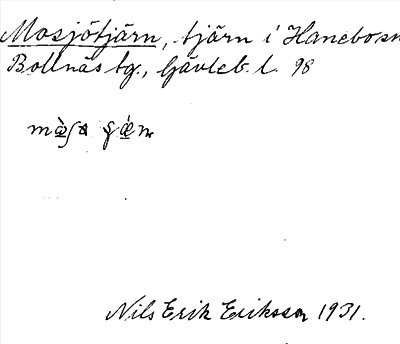 Mosjötjärn, tjärn i Hanebo sn
Bollnäs tg., Gävleb. l. 98
Nils Erik Eriksson 1931.